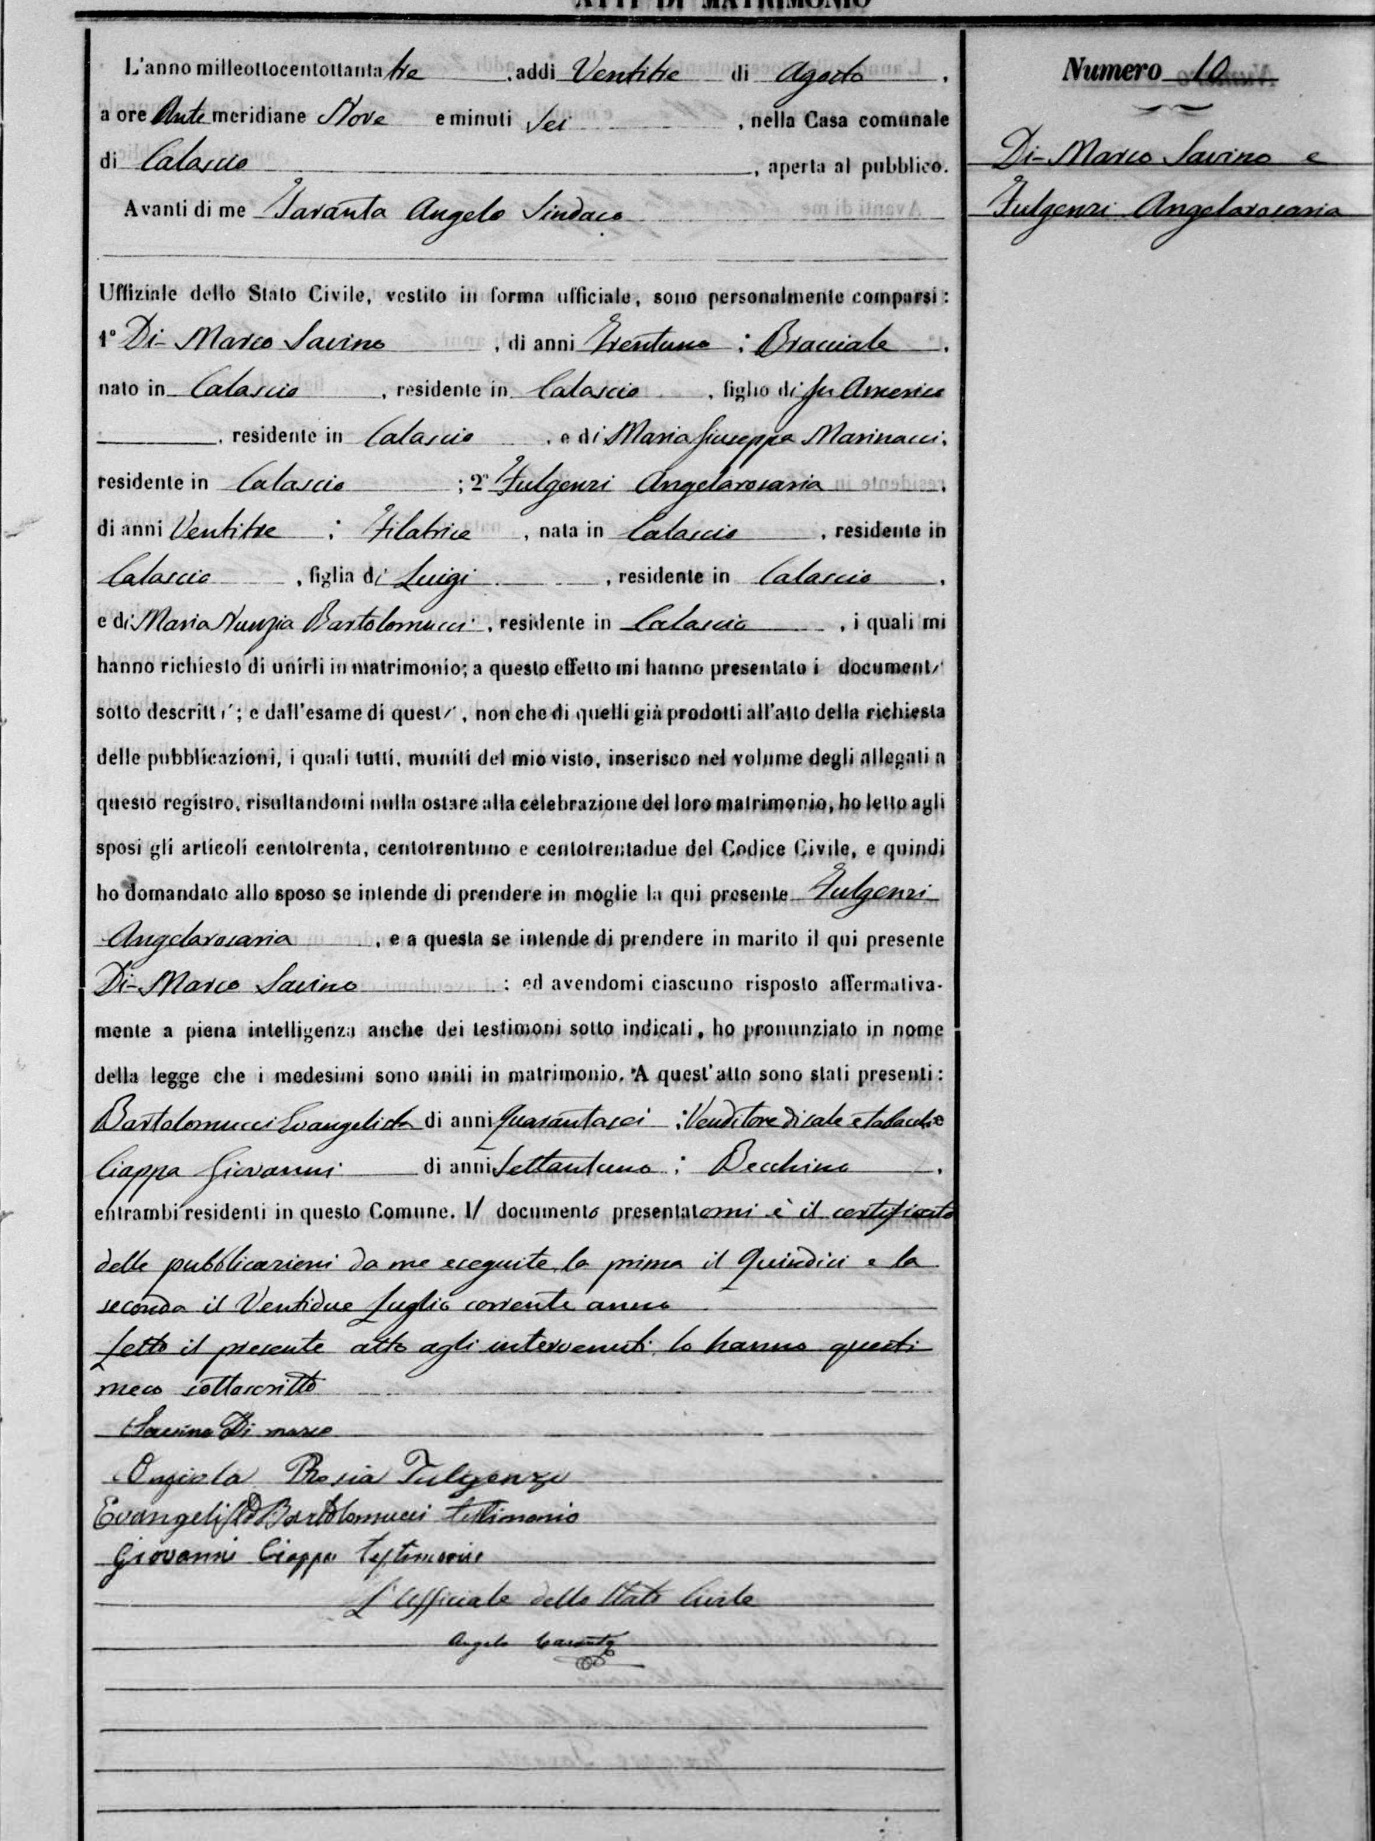 ATTI DI MATRIMONIO
Numero 10
Di-Marco Savino e
Fulgenzi Angelarosaria
L'anno milleottocentottanta tre , addi Ventitre di Agosto ,
a ore Ante meridiane Nove e minuti Sei , nella Casa comunale
di Calascio , aperta al pubblico.
Avanti di me Taranta Angelo Sindaco
Uffiziale dello Stato Civile, vestito in forma ufficiale, sono personalmente comparsi:
1° Di-Marco Savino , di anni Trentuno ; Bracciale ,
nato in Calascio , residente in Calascio , figlio di fu Americo
, residente in Calascio , e di Maria Giuseppa Marinacci,
residente in Calascio ; 2° Fulgenzi Angelarosaria ,
di anni Ventitre ; Filatrice , nata in Calascio , residente in
Calascio , figlia di Luigi , residente in Calascio ,
e di Maria Nunzia Bartolomucci , residente in Calascio , i quali mi
hanno richiesto di unirli in matrimonio; a questo effetto mi hanno presentato i documenti
sotto descritti; e dall'esame di questi, non che di quelli già prodotti all'atto della richiesta
delle pubblicazioni, i quali tutti, muniti del mio visto, inserisco nel volume degli allegati a
questo registro, risultandomi nulla ostare alla celebrazione del loro matrimonio, ho letto agli
sposi gli articoli centotrenta, centotrentuno e centotrentadue del Codice Civile, e quindi
ho domandato allo sposo se intende di prendere in moglie la qui presente Fulgenzi
Angelarosaria , e a questa se intende di prendere in marito il qui presente
Di-Marco Savino ; ed avendomi ciascuno risposto affermativa-
mente a piena intelligenza anche dei testimoni sotto indicati, ho pronunziato in nome
della legge che i medesimi sono uniti in matrimonio. A quest'atto sono stati presenti:
Bartolomucci Evangelista di anni Quarantasei ; Venditore di sale e tabacchi e
Ciappa Giovanni di anni Settantuno ; Becchino ,
entrambi residenti in questo Comune. Il documento presentatomi è il certificato
delle pubblicazioni da me eseguite, la prima il Quindici e la
seconda il Ventidue Luglio corrente anno
Letto il presente atto agli intervenuti, lo hanno questi
meco sottoscritto
Savino Di marco
Angiola Rosia Fulgenzi
Evangelista Bartolomucci testimonio
Giovanni Ciappa testimonio
L'Uffiziale dello Stato Civile
Angelo Taranta